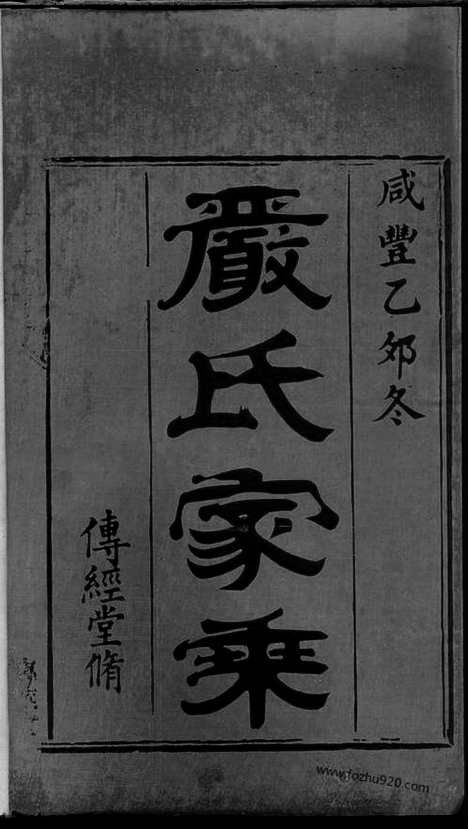 咸豐乙卯冬
嚴氏家乘
傳經堂脩
www.fozhu920.com